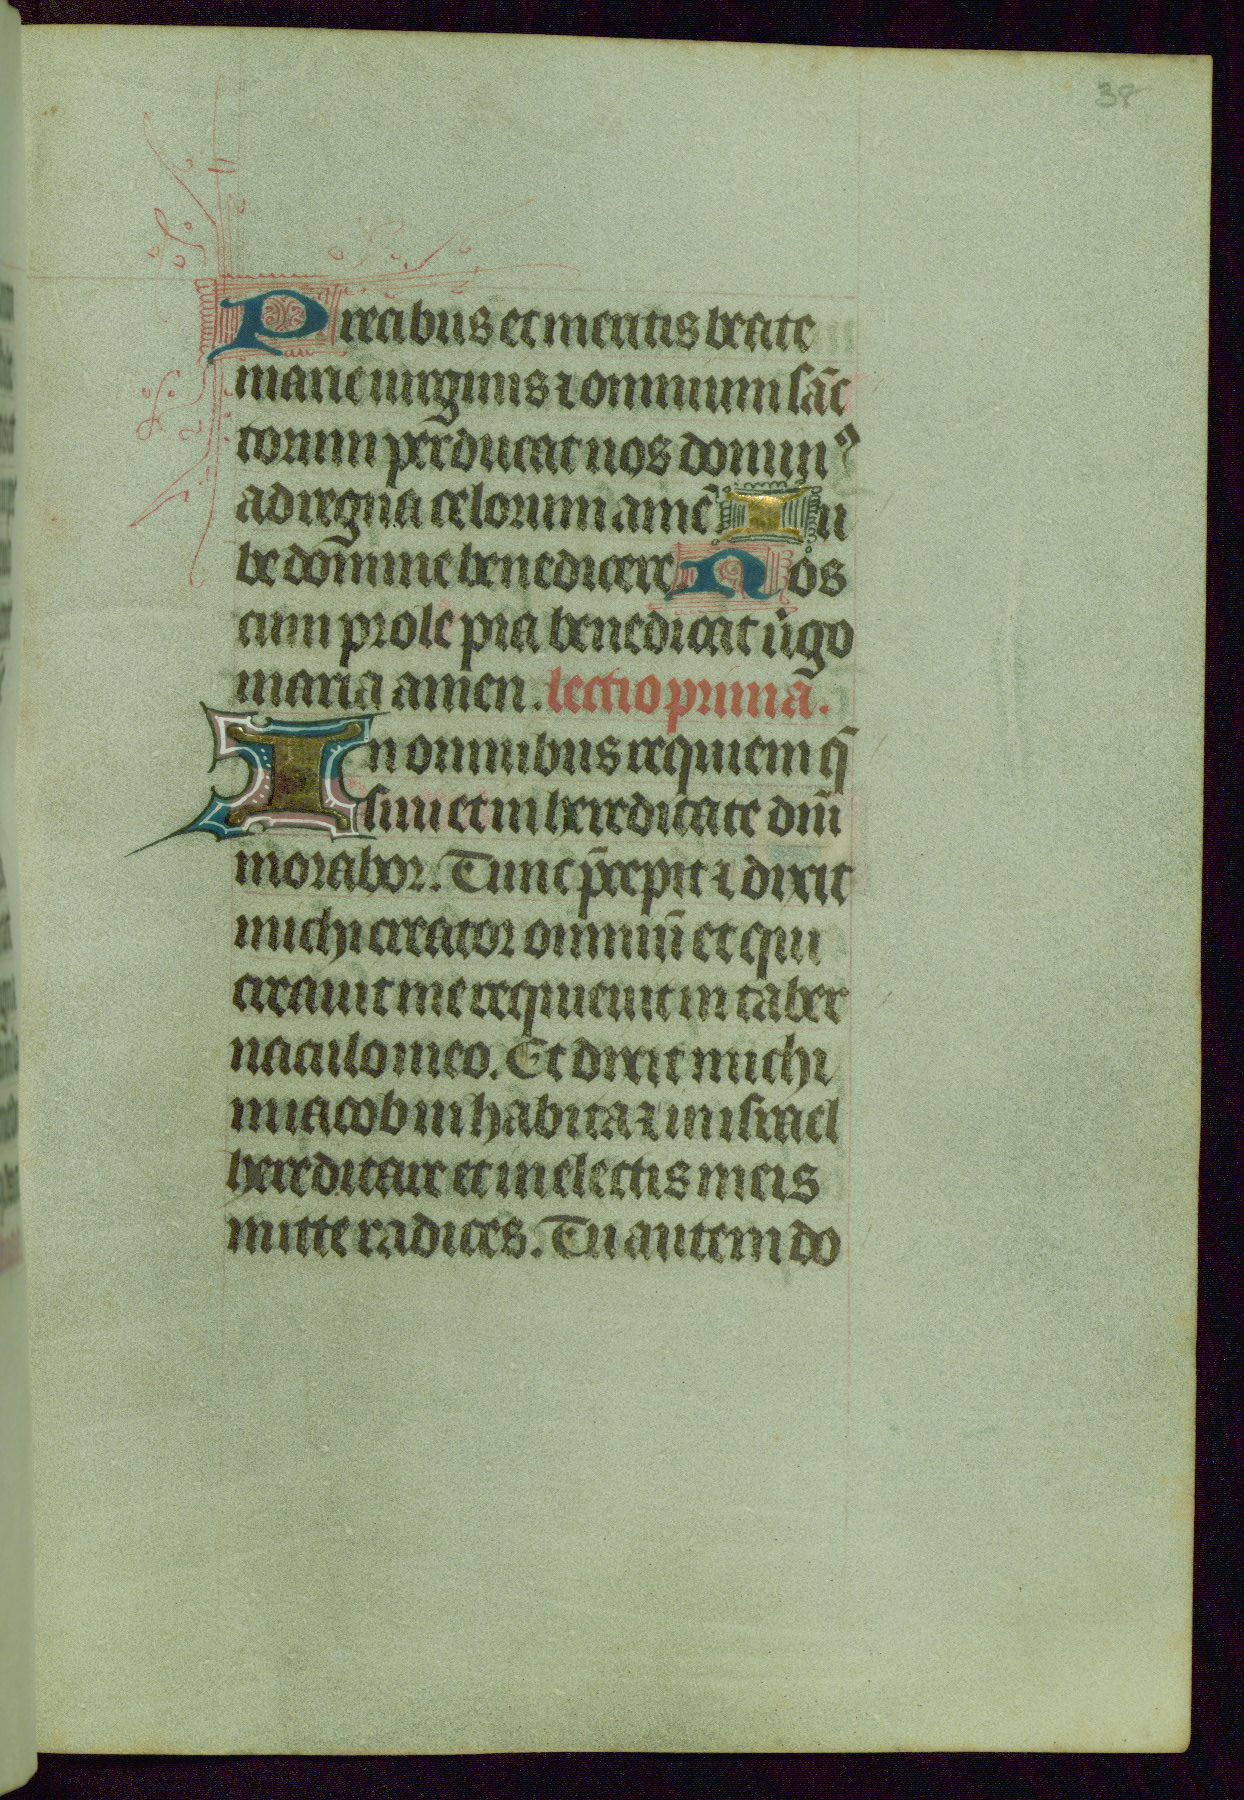 38
Precibus et meritis beate
marie uirginis ⁊ omnium sāc
torum perducat nos domin⁹
ad regna celorum amē Iu
be domine benedicere Nos
cum prole pia benedicat ůgo
maria amen. lectio prima.
In omnibus requiem q̄
siui et in hereditate dn̄i
morabor. Tunc p̄cepit ⁊ dixit
michi creator omniū et qui
creauit me requieuit in taber
naculo meo. Et dixit michi
in iacob in habita ⁊ in israel
hereditare et in electis meis
mitte radices. Tu autem do